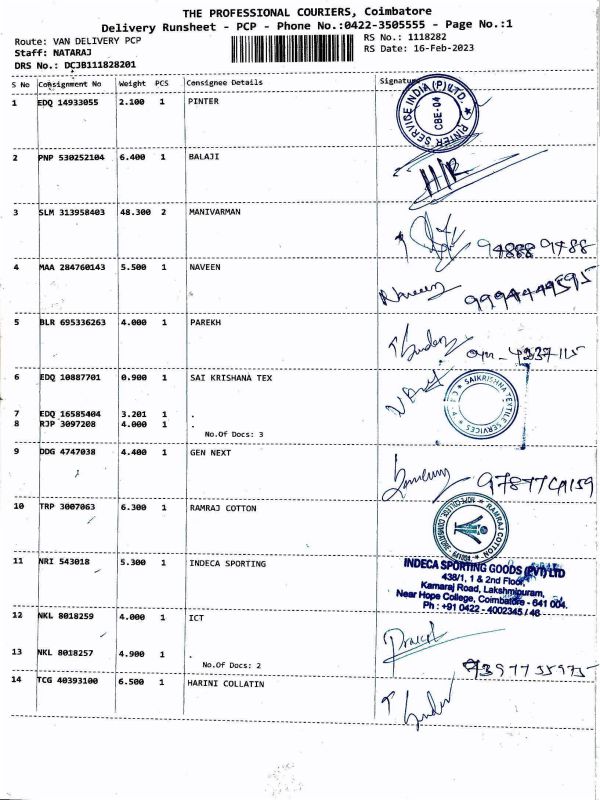 THE PROFESSIONAL COURIERS, Coimbatore
Delivery Runsheet - PCP - Phone No.:0422-3505555 - Page No.:1
Route: VAN DELIVERY PCP
Staff: NATARAJ
DRS No.: DCJB111828201
RS No.: 1118282
RS Date: 16-Feb-2023
S No Consignment No Weight PCS Consignee Details Signature
1 EDQ 14933055 2.100 1 PINTER
PINTER SERVICE INDIA (P) LTD.
CBE-04
2 PNP 530252104 6.400 1 BALAJI
3 SLM 313958403 48.300 2 MANIVARMAN
4 MAA 284760143 5.500 1 NAVEEN
Naveen
5 BLR 695336263 4.000 1 PAREKH
6 EDQ 10887701 0.900 1 SAI KRISHANA TEX
SAIKRISHNA TEXTILE SERVICES
7 EDQ 16585404 3.201 1 .
8 RJP 3097208 4.000 1 .
No.Of Docs: 3
9 DDG 4747038 4.400 1 GEN NEXT
10 TRP 3007063 6.300 1 RAMRAJ COTTON
RAMRAJ COTTON
11 NRI 543018 5.300 1 INDECA SPORTING
INDECA SPORTING GOODS (PVT) LTD
438/1, 1 & 2nd Floor,
Kamaraj Road, Lakshmipuram,
Near Hope College, Coimbatore - 641 004.
Ph : +91 0422 - 4002345 / 46
12 NKL 8018259 4.000 1 ICT
13 NKL 8018257 4.900 1 .
No.Of Docs: 2
14 TCG 40393100 6.500 1 HARINI COLLATIN